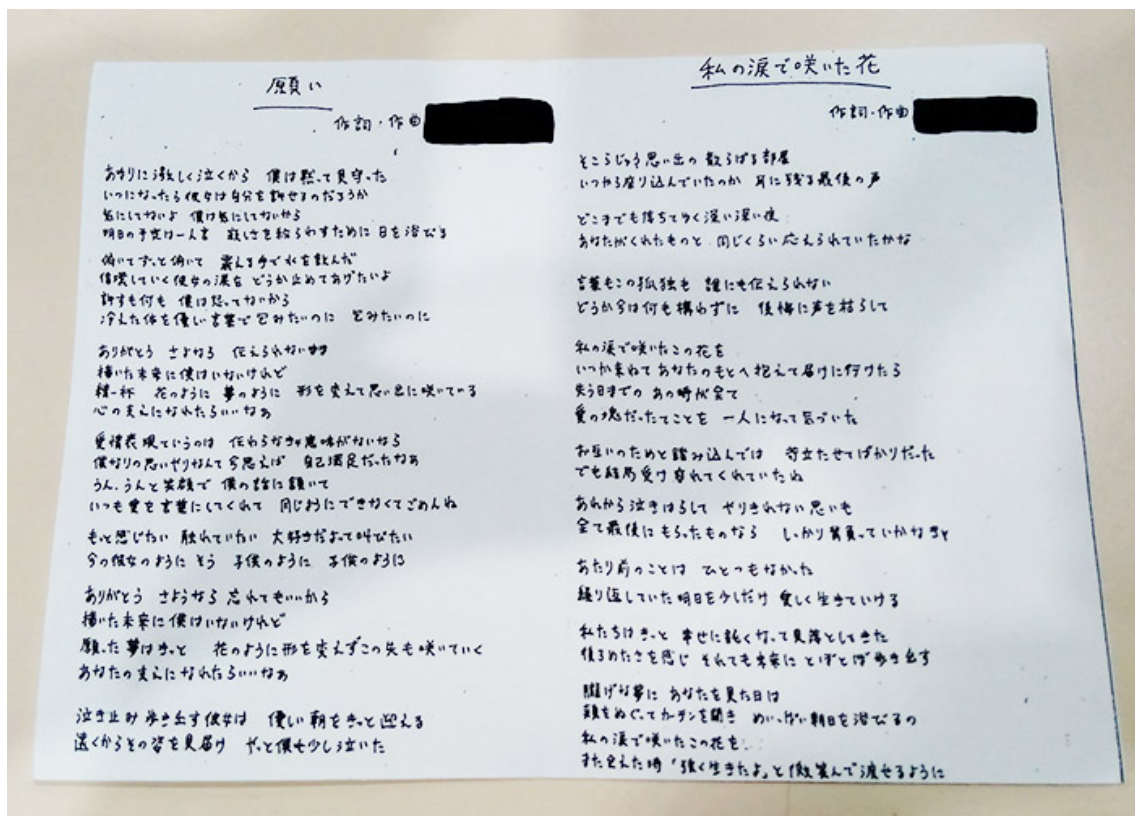 願い
作詞・作曲
あまりに激しく泣くから 僕は黙って見守った
いつになったら彼女は自分を許せるのだろうか
気にしてないよ 僕は気にしてないから
明日の予定は一人言 寂しさを紛らわすために 日を浴びる
俯いてずっと俯いて 震える手で水を飲んだ
循環していく彼女の涙を どうか止めてあげたいよ
許すも何も 僕は怒ってないから
冷えた体を優しい言葉で包みたいのに 包みたいのに
ありがとう さよなら 伝えられない
描いた未来に僕はいないけれど
精一杯 花のように 夢のように 形を変えて思い出に咲いている
心の支えになれたらいいなぁ
愛情表現というのは 伝わらなきゃ意味がないなら
僕なりの思いやりなんて今思えば 自己満足だったなぁ
うん、うんと笑顔で 僕の話に頷いて
いつも愛を言葉にしてくれて 同じようにできなくてごめんね
もっと感じたい 触れていたい 大好きだよって叫びたい
今の彼女のように そう 子供のように 子供のように
ありがとう さようなら 忘れてもいいから
描いた未来に僕はいないけれど
願った夢はきっと 花のように形を変えずこの先も咲いていく
あなたの支えになれたらいいなぁ
泣き止み歩き出す彼女は 優しい朝をきっと迎える
遠くからその姿を見届け やっと僕も少し泣いた
私の涙で咲いた花
作詞・作曲
そこらじゅう思い出の散らばる部屋
いつから座り込んでいたのか 耳に残る最後の声
どこまでも落ちてゆく深い深い夜
あなたがくれたものと 同じくらい応えられていたかな
言葉もこの孤独も 誰にも伝えられない
どうか今は何も構わずに 後悔に声を枯らして
私の涙で咲いたこの花を
いつか束ねてあなたのもとへ抱えて届けに行けたら
失う日までの あの時が全て
愛の塊だったてことを 一人になって気づいた
お互いのためと踏み込んでは 苛立たせてばかりだった
でも結局受け容れてくれていたね
あれから泣きはらして やりきれない思いも
全て最後にもらったものなら しっかり背負っていかなきゃ
あたり前のことは ひとつもなかった
繰り返していた明日を少しだけ 愛しく生きていける
私たちはきっと 幸せに鈍くなって見落としてきた
後ろめたさを感じ それでも未来に とぼとぼ歩き出す
朧げな夢に あなたを見た日は
頬をぬぐってカーテンを開き めいっぱい朝日を浴びるの
私の涙で咲いたこの花を
また会えた時「強く生きたよ」と微笑んで渡せるように